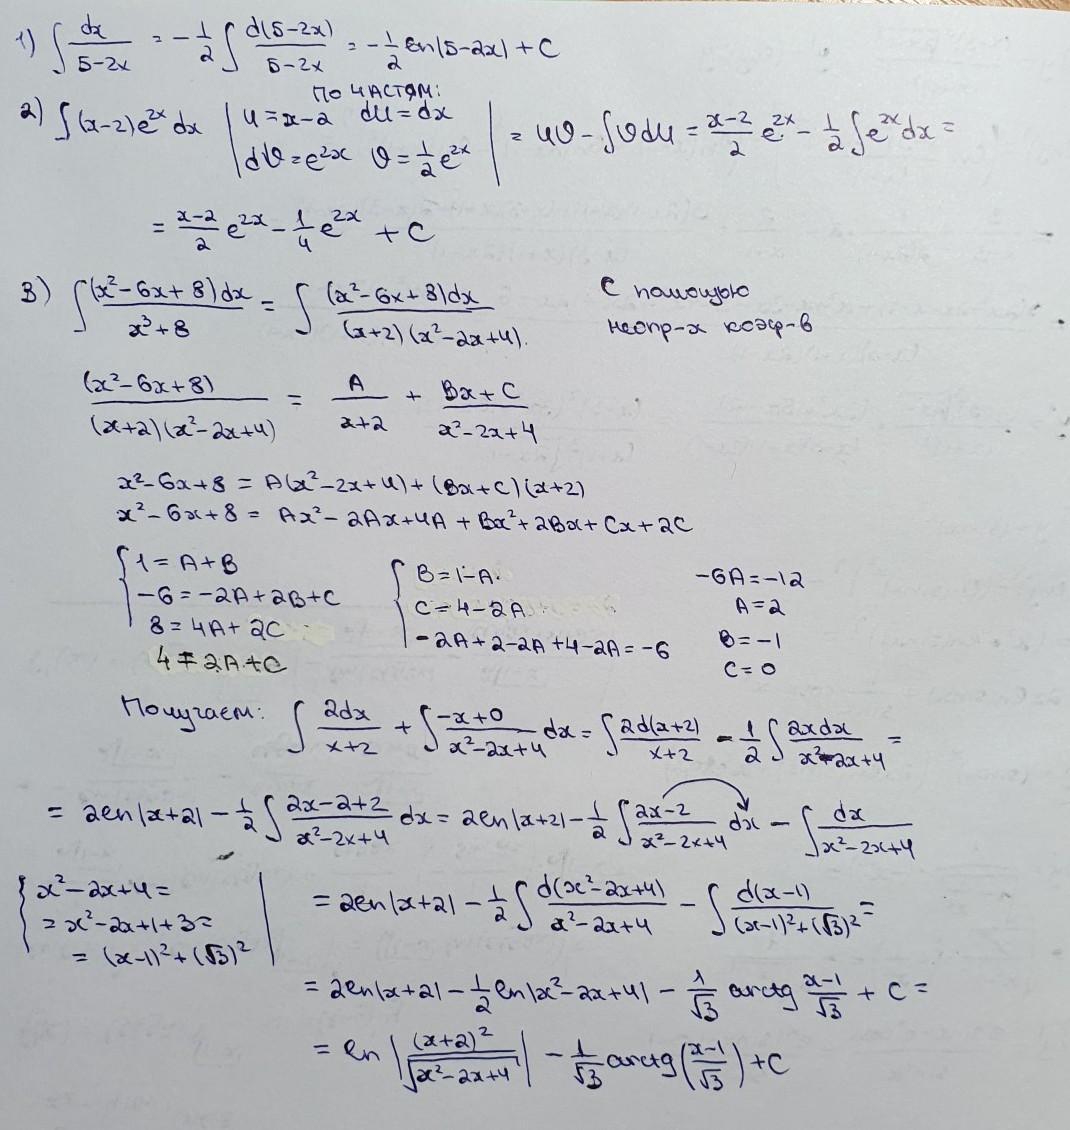 1) ∫ dx/(5-2x) = -1/2 ∫ d(5-2x)/(5-2x) = -1/2 ln|5-2x| + C
ПО ЧАСТЯМ:
2) ∫(x-2)e^(2x) dx | u = x-2 du = dx | = uv - ∫v du = (x-2)/2 e^(2x) - 1/2 ∫e^(2x) dx =
dv = e^(2x) v = 1/2 e^(2x)
= (x-2)/2 e^(2x) - 1/4 e^(2x) + C
3) ∫ (x²-6x+8)dx/(x³+8) = ∫ (x²-6x+8)dx/((x+2)(x²-2x+4)).
С помощью
неопр-х коэф-в
(x²-6x+8)/((x+2)(x²-2x+4)) = A/(x+2) + (Bx+C)/(x²-2x+4)
x²-6x+8 = A(x²-2x+4)+(Bx+C)(x+2)
x²-6x+8 = Ax²-2Ax+4A+Bx²+2Bx+Cx+2C
{ 1 = A+B
-6 = -2A+2B+C
8 = 4A+2C
4 = 2A+C
{ B = 1-A
C = 4-2A
-2A+2-2A+4-2A = -6
-6A = -12
A = 2
B = -1
C = 0
Получаем: ∫ 2dx/(x+2) + ∫ (-x+0)/(x²-2x+4) dx = ∫ 2d(x+2)/(x+2) - 1/2 ∫ 2xdx/(x²-2x+4) =
= 2ln|x+2| - 1/2 ∫ (2x-2+2)/(x²-2x+4) dx = 2ln|x+2| - 1/2 ∫ (2x-2)/(x²-2x+4) dx - ∫ dx/(x²-2x+4)
{ x²-2x+4 =
= x²-2x+1+3 =
= (x-1)²+(√3)² |
= 2ln|x+2| - 1/2 ∫ d(x²-2x+4)/(x²-2x+4) - ∫ d(x-1)/((x-1)²+(√3)²) =
= 2ln|x+2| - 1/2 ln|x²-2x+4| - 1/√3 arctg (x-1)/√3 + C =
= ln |(x+2)²/√(x²-2x+4)| - 1/√3 arctg((x-1)/√3) + C